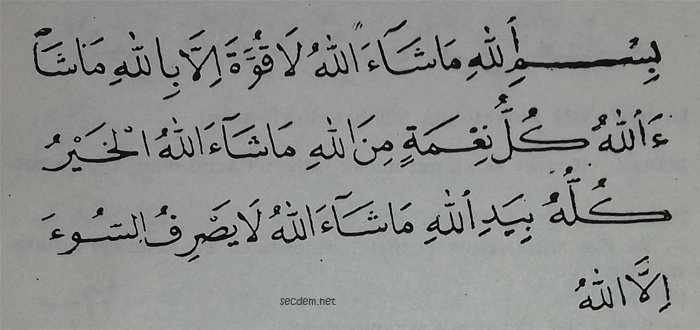 بِسْمِ ٱللهِ مَاشَآءَ ٱللهُ لَا قُوَّةَ اِلَّا بِاللهِ مَاشَآ
ءَ ٱللهُ كُلُّ نِعْمَةٍ مِنَ اللهِ مَاشَآءَ اللهُ الْخَيْرُ
كُلُّهُ بِيَدِ ٱللهِ مَاشَآءَ اللهُ لَا يَصْرِفُ السُّوءَ
اِلَّا اللهُ
secdem.net